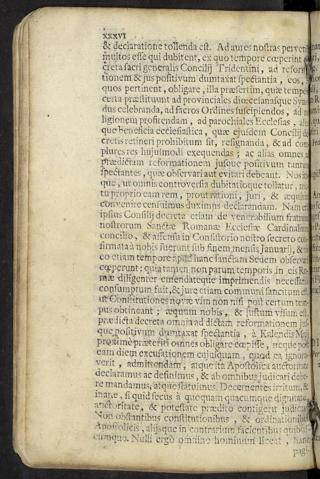 xxxvi
& declaratione tollenda est. Ad aures nostras perveni
multos esse qui dubitent, ex quo tempore cœperint
creta sacri generalis Concilij Tridentini, ad refor
tionem & jus positivum dumtaxat spectantia, eos,
quos pertinent, obligare, illa præsertim, quæ
cena præstituunt ad provinciales diœcesanasque Syno
dus celebranda, ad sacros Ordines suscipiendos, ad
ligionem profitendam, ad parochiales Ecclesias, ali
que beneficia ecclesiastica, quæ ejusdem Concilij de
cretis retineri prohibitum sit, resignanda, & ad com
plures res hujusmodi exequendas; ac alias omnes a
prædictam reformationem jusque positivum tantum
spectantes, quæ observari aut evitari debeant. Nos
que, ut omnis controversia dubitatioque tollatur,
tu proprio eam rem, prout rationi, juri, & æquitati
convenire censuimus duximus declarandam. Nam
ipsius Concilij decreta etiam de venerabilium fratrum
nostrorum Sanctæ Romanæ Ecclesiæ Cardinalium
concilio, & assensu in Consistorio nostro secreto con
firmata à nobis fuerunt sub finem mensis Januarij, &
eo etiam tempore hanc sanctam Sedem observari
cœperunt; quia tamen non parum temporis in eis Ro
mæ diligenter emendateque imprimendis necessario
consumptum fuit, & jure etiam communi sancitum est
ut Constitutiones novæ vim non nisi post certum tem
pus obtineant; æquum nobis, & justum visum est,
prædicta decreta omnia ad dictam reformationem jus
que positivum dumtaxat spectantia, à Kalendis Maij
proximè præteriti omnes obligare cœpisse, neque post
eam diem excusationem cujusquam, quod ea ignora
verit, admittendam; atque ita Apostolica auctoritate
declaramus ac definimus, & ab omnibus judicari debe
re mandamus, atque statuimus. Decernentes irritum, &
inane, si quid secus à quoquam quacumque dignitate,
auctoritate, & potestate prædito contigerit judicari.
Non obstantibus constitutionibus, & ordinationibus
Apostolicis, alijsque in contrarium facientibus quibus
cumque. Nulli ergo omnino hominum liceat, hanc
pagi-